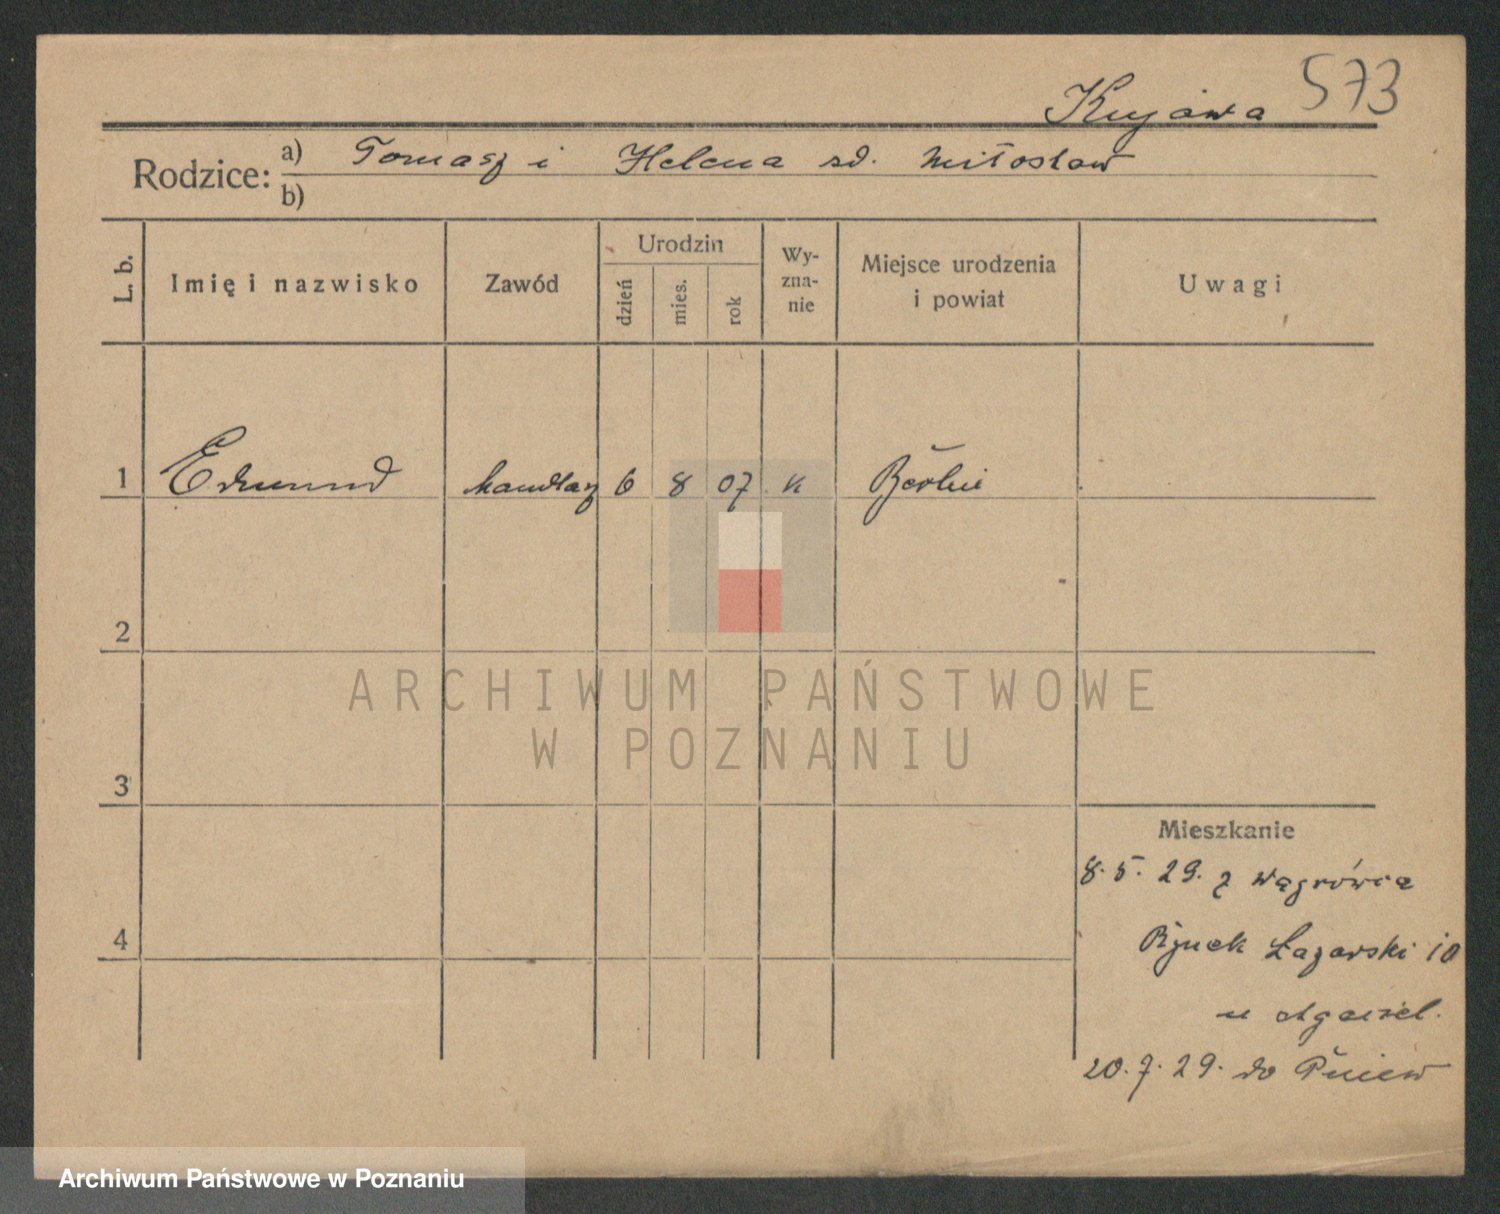 573
Kujawa
Rodzice: a) Tomasz i Helena zd. Miłosław
b)
L. b.
Imię i nazwisko
Zawód
Urodzin
dzień
mies.
rok
Wy-
zna-
nie
Miejsce urodzenia
i powiat
Uwagi
1 Edmund handlarz 6 8 07 k Berlin
2
3
4
Mieszkanie
8. 5. 29. z Wągrówca
Rynek Łazarski 10
u
20. 7. 29. do Pniew
ARCHIWUM PAŃSTWOWE
W POZNANIU
Archiwum Państwowe w Poznaniu